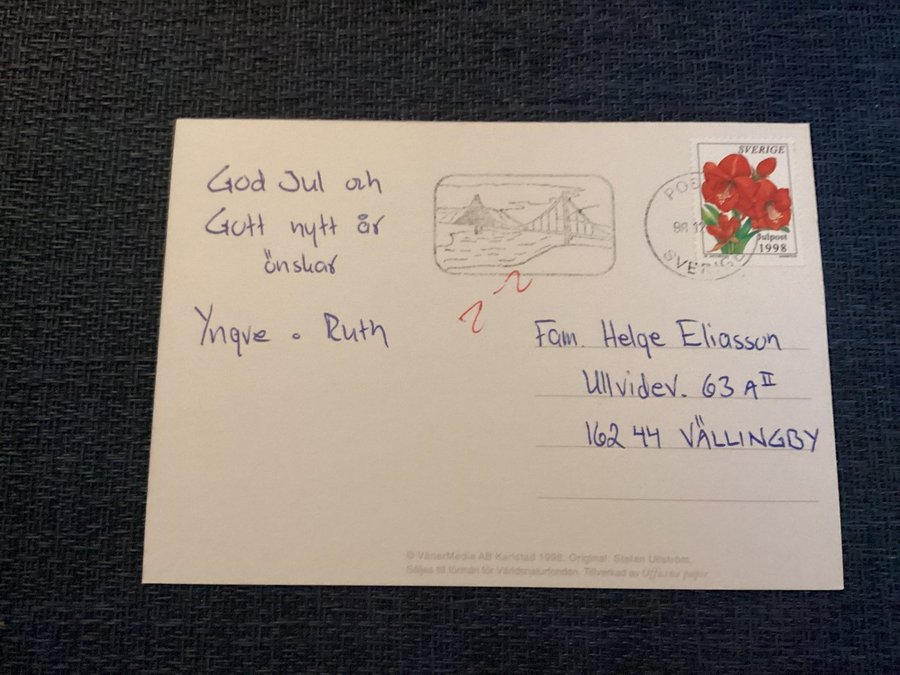 God Jul och
Gott nytt år
önskar
Yngve o Ruth
SVERIGE
Julpost
1998
98 12
SVERIGE
Fam. Helge Eliasson
Ullvidev. 63 A II
162 44 VÄLLINGBY
© VänerMedia AB Karlstad 1998. Original: Stefan Ullström.
Säljes till förmån för Världsnaturfonden. Tillverkad av